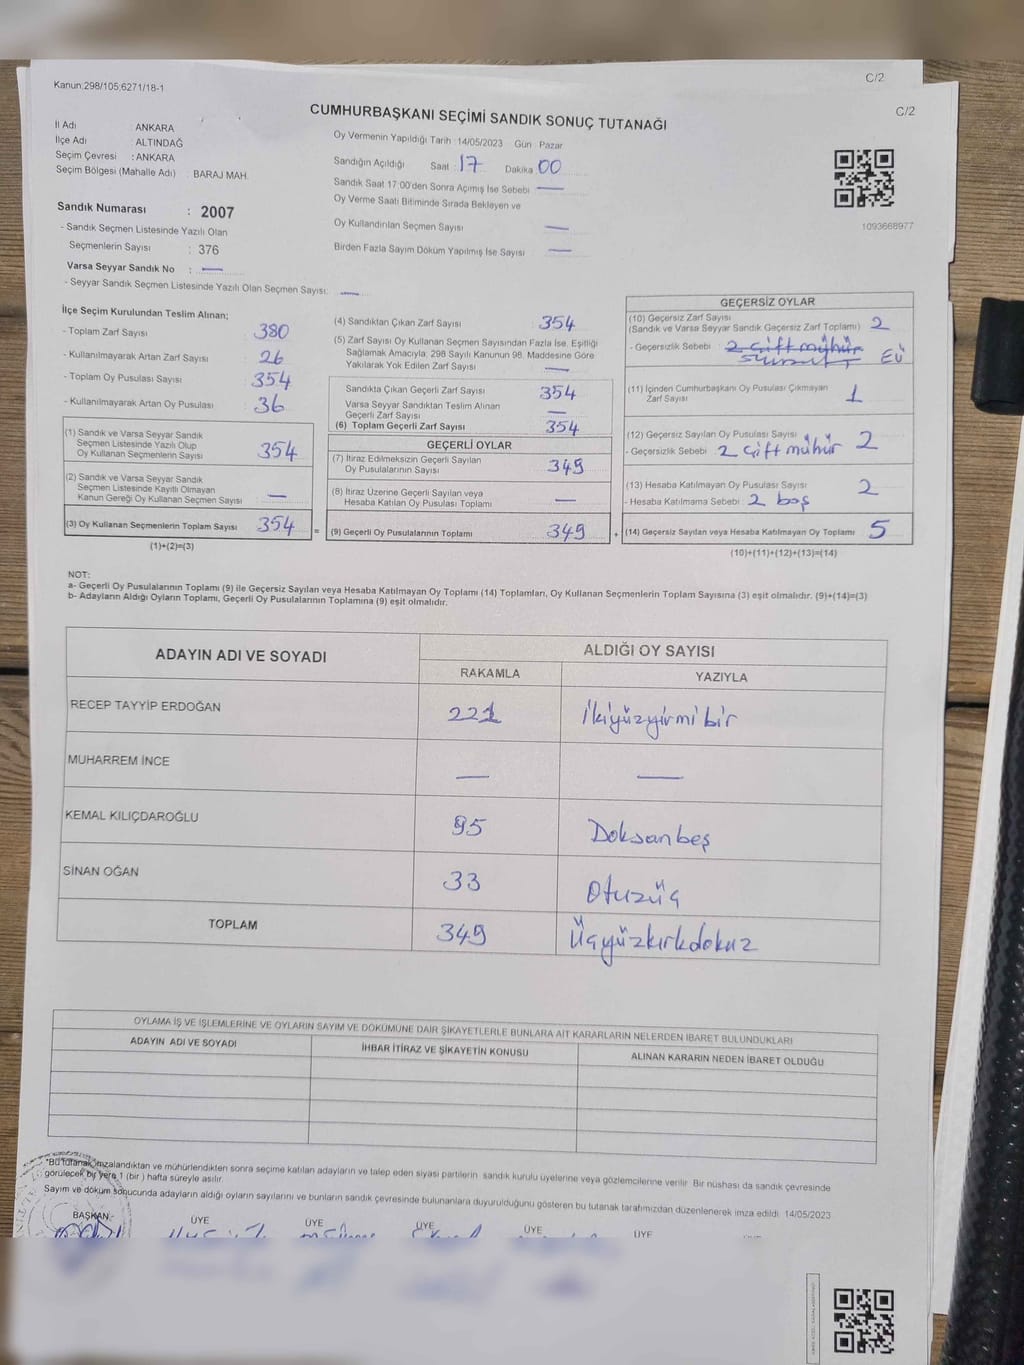 Kanun:298/105:6271/18-1
C/2
C/2
CUMHURBAŞKANI SEÇİMİ SANDIK SONUÇ TUTANAĞI
İl Adı : ANKARA
İlçe Adı : ALTINDAĞ
Seçim Çevresi : ANKARA
Seçim Bölgesi (Mahalle Adı) : BARAJ MAH.
Oy Vermenin Yapıldığı Tarih :14/05/2023 Gün Pazar
Sandığın Açıldığı Saat : 17 Dakika 00
Sandık Saat 17:00'den Sonra Açılmış İse Sebebi —
Oy Verme Saati Bitiminde Sırada Bekleyen ve
Oy Kullandırılan Seçmen Sayısı —
Birden Fazla Sayım Döküm Yapılmış İse Sayısı —
1093668977
Sandık Numarası : 2007
- Sandık Seçmen Listesinde Yazılı Olan
Seçmenlerin Sayısı : 376
Varsa Seyyar Sandık No : —
- Seyyar Sandık Seçmen Listesinde Yazılı Olan Seçmen Sayısı: —
İlçe Seçim Kurulundan Teslim Alınan;
- Toplam Zarf Sayısı 380
- Kullanılmayarak Artan Zarf Sayısı 26
- Toplam Oy Pusulası Sayısı 354
- Kullanılmayarak Artan Oy Pusulası 36
(1) Sandık ve Varsa Seyyar Sandık
Seçmen Listesinde Yazılı Olup
Oy Kullanan Seçmenlerin Sayısı 354
(2) Sandık ve Varsa Seyyar Sandık
Seçmen Listesinde Kayıtlı Olmayan
Kanun Gereği Oy Kullanan Seçmen Sayısı —
(3) Oy Kullanan Seçmenlerin Toplam Sayısı 354 =
(1)+(2)=(3)
(4) Sandıktan Çıkan Zarf Sayısı 354
(5) Zarf Sayısı Oy Kullanan Seçmen Sayısından Fazla İse, Eşitliği
Sağlamak Amacıyla; 298 Sayılı Kanunun 98. Maddesine Göre
Yakılarak Yok Edilen Zarf Sayısı —
Sandıkta Çıkan Geçerli Zarf Sayısı 354
Varsa Seyyar Sandıktan Teslim Alınan
Geçerli Zarf Sayısı —
(6) Toplam Geçerli Zarf Sayısı 354
GEÇERLİ OYLAR
(7) İtiraz Edilmeksizin Geçerli Sayılan
Oy Pusulalarının Sayısı 349
(8) İtiraz Üzerine Geçerli Sayılan veya
Hesaba Katılan Oy Pusulası Toplamı —
(9) Geçerli Oy Pusulalarının Toplamı 349 +
GEÇERSİZ OYLAR
(10) Geçersiz Zarf Sayısı
(Sandık ve Varsa Seyyar Sandık Geçersiz Zarf Toplamı) 2
- Geçersizlik Sebebi : 2 çift mühür
(11) İçinden Cumhurbaşkanı Oy Pusulası Çıkmayan
Zarf Sayısı 1
(12) Geçersiz Sayılan Oy Pusulası Sayısı 2
- Geçersizlik Sebebi : 2 çift mühür
(13) Hesaba Katılmayan Oy Pusulası Sayısı 2
- Hesaba Katılmama Sebebi : 2 boş
(14) Geçersiz Sayılan veya Hesaba Katılmayan Oy Toplamı 5
(10)+(11)+(12)+(13)=(14)
NOT:
a- Geçerli Oy Pusulalarının Toplamı (9) ile Geçersiz Sayılan veya Hesaba Katılmayan Oy Toplamı (14) Toplamları, Oy Kullanan Seçmenlerin Toplam Sayısına (3) eşit olmalıdır. (9)+(14)=(3)
b- Adayların Aldığı Oyların Toplamı, Geçerli Oy Pusulalarının Toplamına (9) eşit olmalıdır.
ADAYIN ADI VE SOYADI ALDIĞI OY SAYISI
RAKAMLA YAZIYLA
RECEP TAYYİP ERDOĞAN 221 İkiyüzyirmibir
MUHARREM İNCE — —
KEMAL KILIÇDAROĞLU 95 Doksanbeş
SİNAN OĞAN 33 Otuzüç
TOPLAM 349 Üçyüzkırkdokuz
OYLAMA İŞ VE İŞLEMLERİNE VE OYLARIN SAYIM VE DÖKÜMÜNE DAİR ŞİKAYETLERLE BUNLARA AİT KARARLARIN NELERDEN İBARET BULUNDUKLARI
ADAYIN ADI VE SOYADI İHBAR İTİRAZ VE ŞİKAYETİN KONUSU ALINAN KARARIN NEDEN İBARET OLDUĞU
*Bu tutanak imzalandıktan ve mühürlendikten sonra seçime katılan adayların ve talep eden siyasi partilerin sandık kurulu üyelerine veya gözlemcilerine verilir. Bir nüshası da sandık çevresinde
görülecek bir yere 1 (bir) hafta süreyle asılır.
Sayım ve döküm sonucunda adayların aldığı oyların sayılarını ve bunların sandık çevresinde bulunanlara duyurulduğunu gösteren bu tutanak tarafımızdan düzenlenerek imza edildi. 14/05/2023
BAŞKAN ÜYE ÜYE ÜYE ÜYE ÜYE